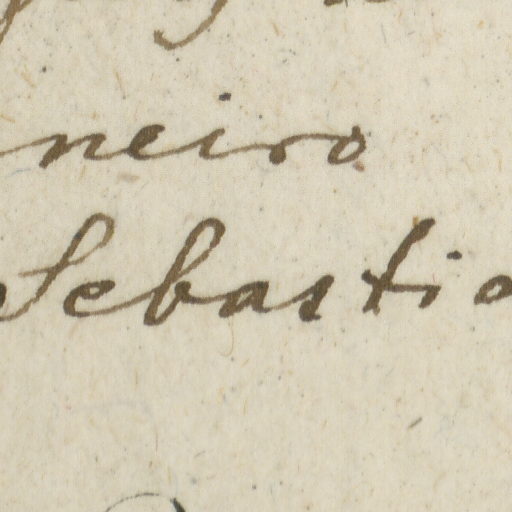 neiro
Sebastio